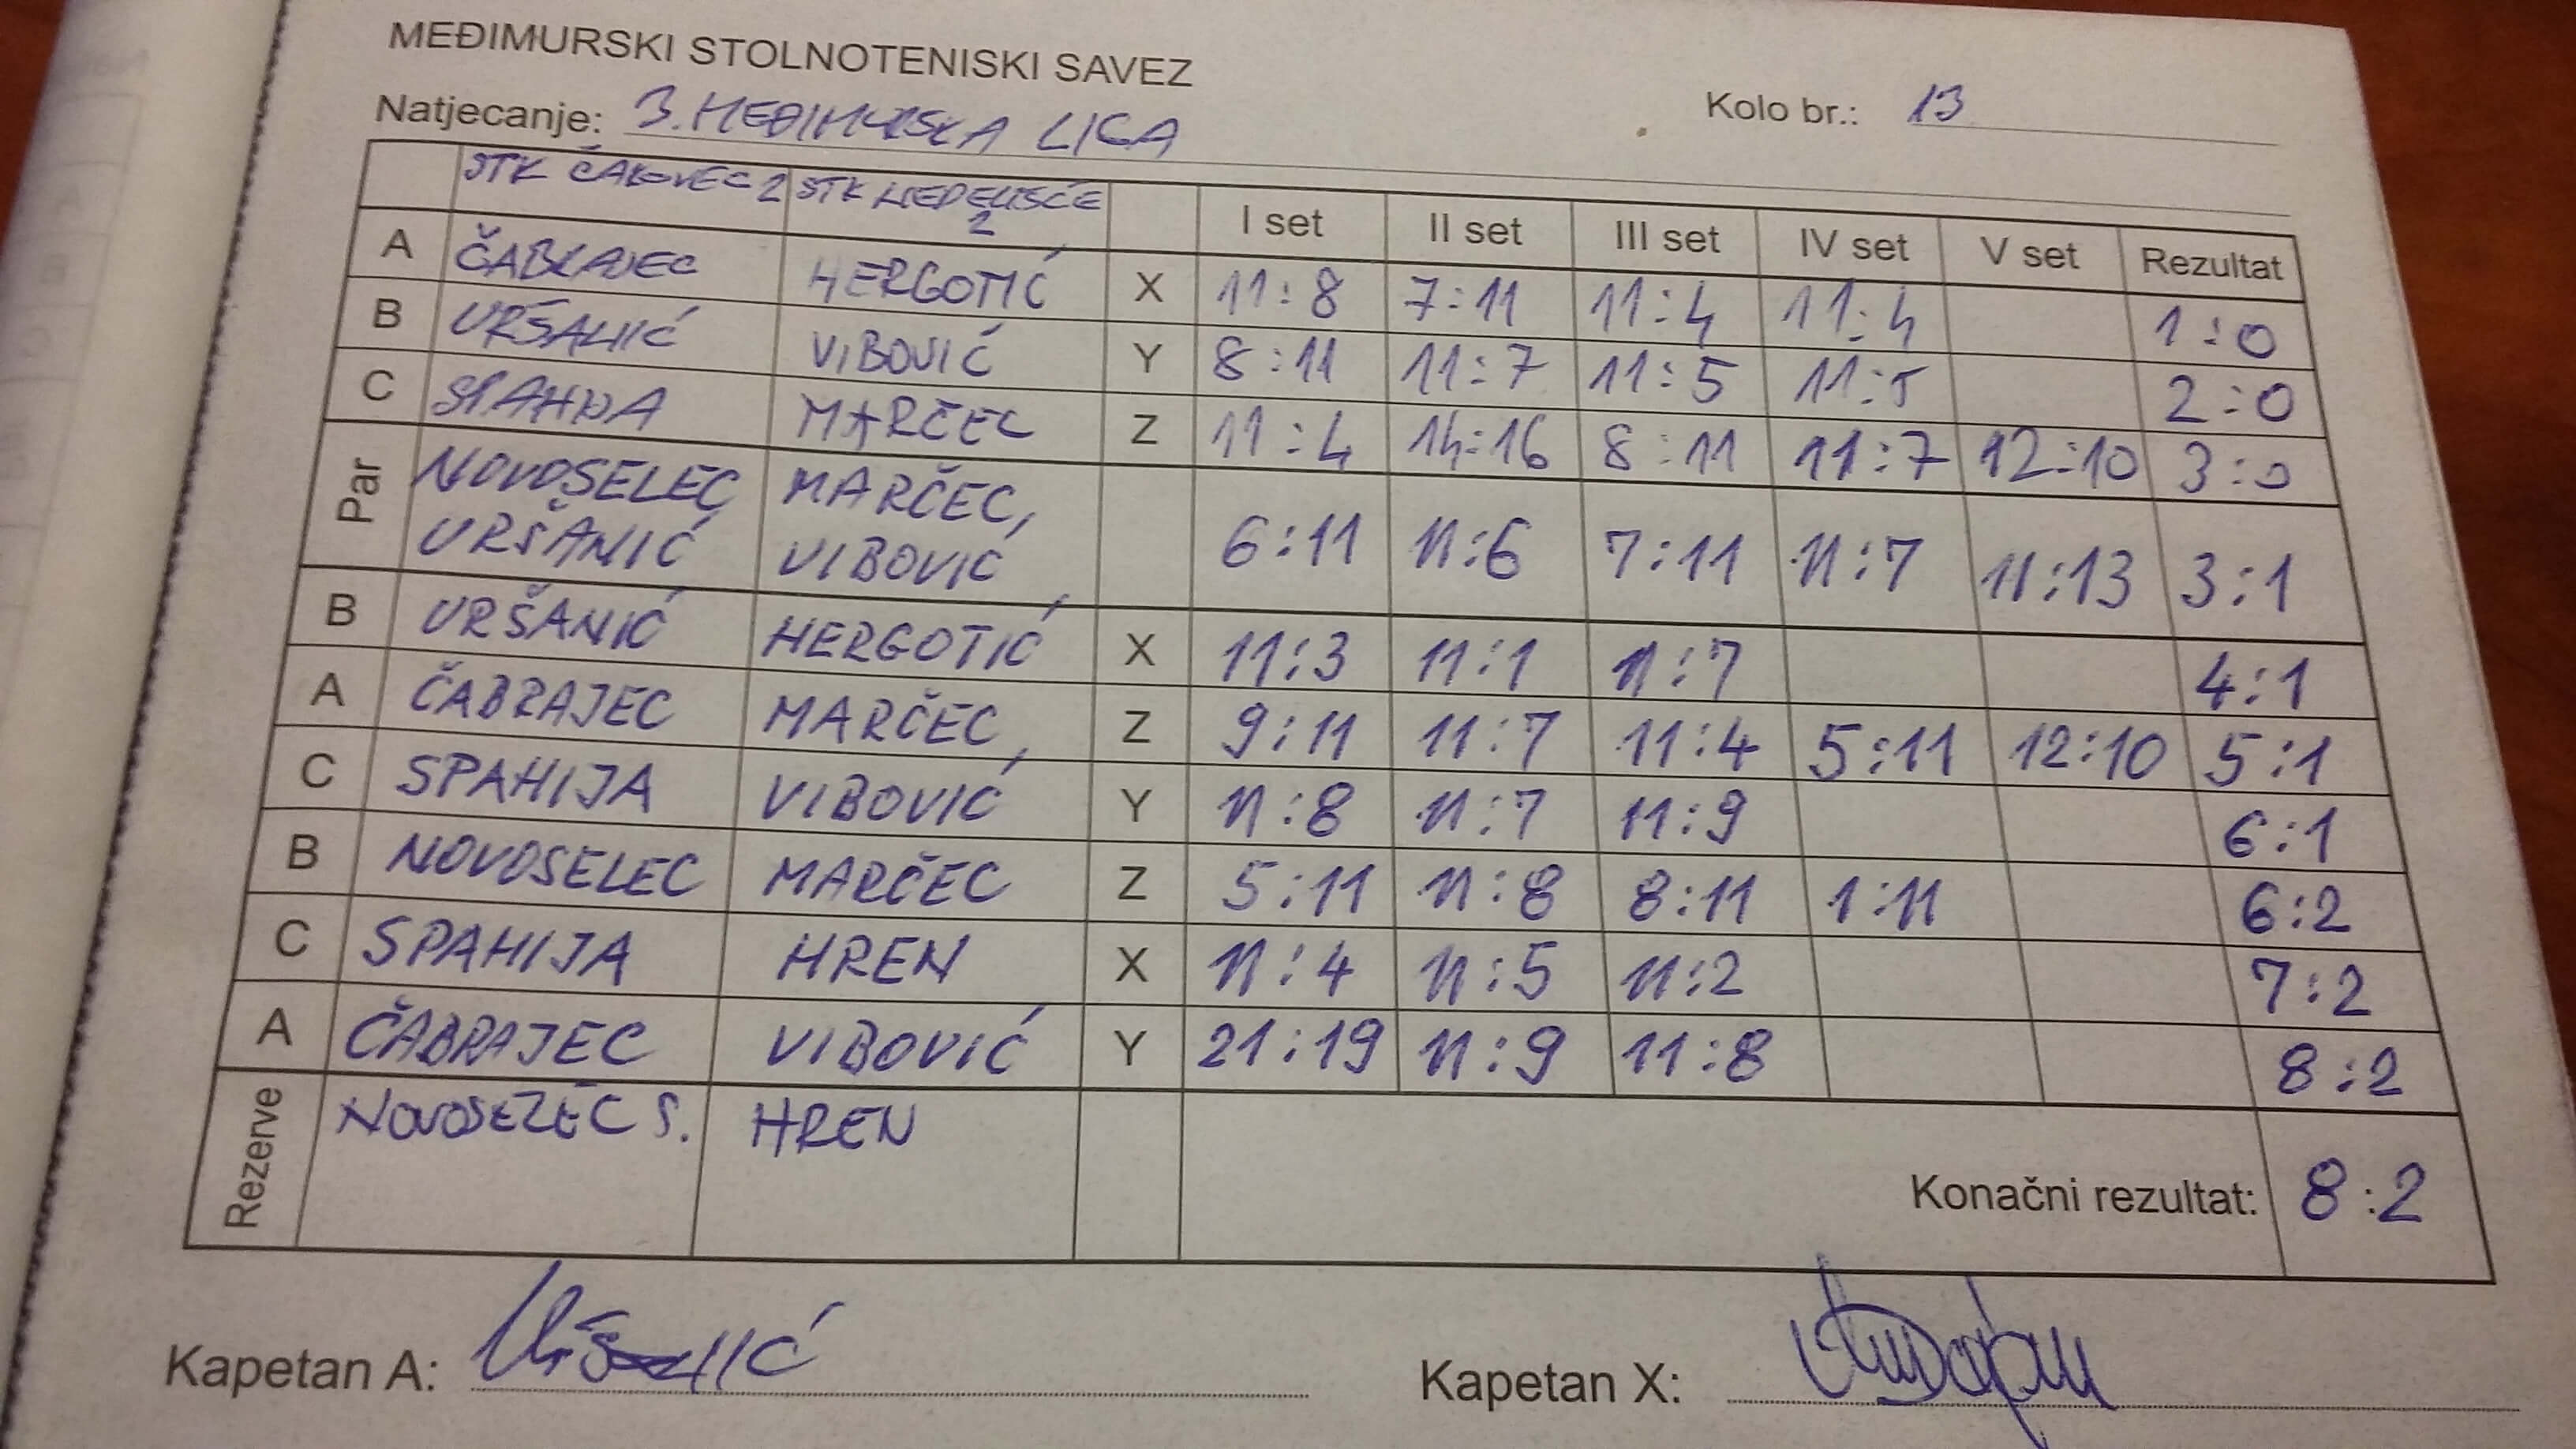 MEĐIMURSKI STOLNOTENISKI SAVEZ
Natjecanje: 3. MEĐIMURSKA LIGA Kolo br.: 13
STK ČAKOVEC 2 STK NEDELIŠĆE 2 I set II set III set IV set V set Rezultat
A ČABRAJEC HERGOTIĆ X 11:8 7:11 11:4 11:4 1:0
B URŠANIĆ VIBOVIĆ Y 8:11 11:7 11:5 11:5 2:0
C SPAHIJA MARČEC Z 11:4 14:16 8:11 11:7 12:10 3:0
Par NOVOSELEC MARČEC, 6:11 11:6 7:11 11:7 11:13 3:1
URŠANIĆ VIBOVIĆ
B URŠANIĆ HERGOTIĆ X 11:3 11:1 11:7 4:1
A ČABRAJEC MARČEC Z 9:11 11:7 11:4 5:11 12:10 5:1
C SPAHIJA VIBOVIĆ Y 11:8 11:7 11:9 6:1
B NOVOSELEC MARČEC Z 5:11 11:8 8:11 1:11 6:2
C SPAHIJA HREN X 11:4 11:5 11:2 7:2
A ČABRAJEC VIBOVIĆ Y 21:19 11:9 11:8 8:2
Rezerve NOVOSELEC S. HREN
Konačni rezultat: 8:2
Kapetan A: Kapetan X: